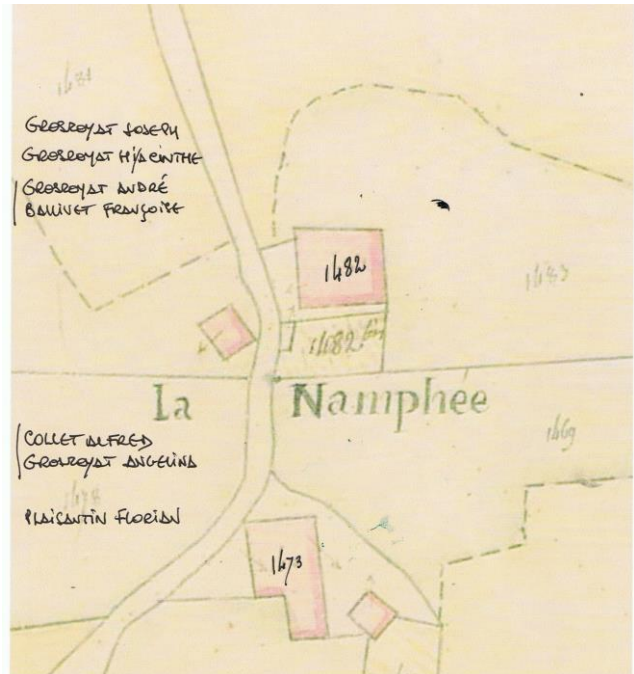 1481
GROSROYAT JOSEPH
GROSROYAT HYACINTHE
GROSROYAT ANDRÉ
BALLIVET FRANÇOISE
1482
1483
1482 bis
La Namphée
COLLET ALFRED
GROSROYAT ANGELINA
1469
1478
PLAISANTIN FLORIAN
1473